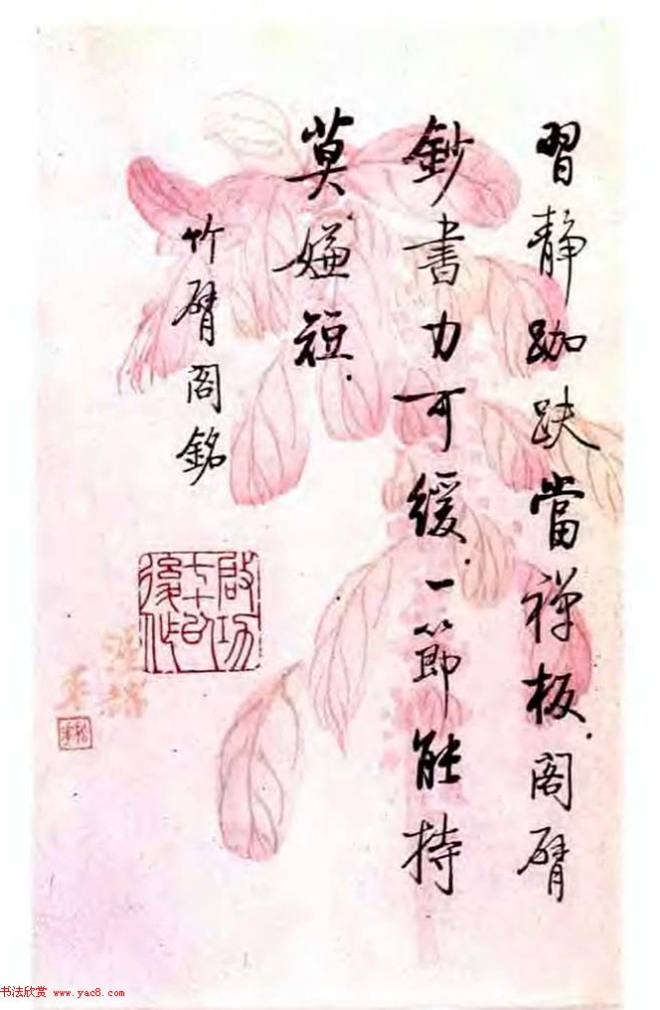 習静跏趺當禅板.阁臂
鈔書力可緩.一節能持
莫嫌短.
竹臂阁銘
啟功
七十後作
书法欣赏 www.yac8.com